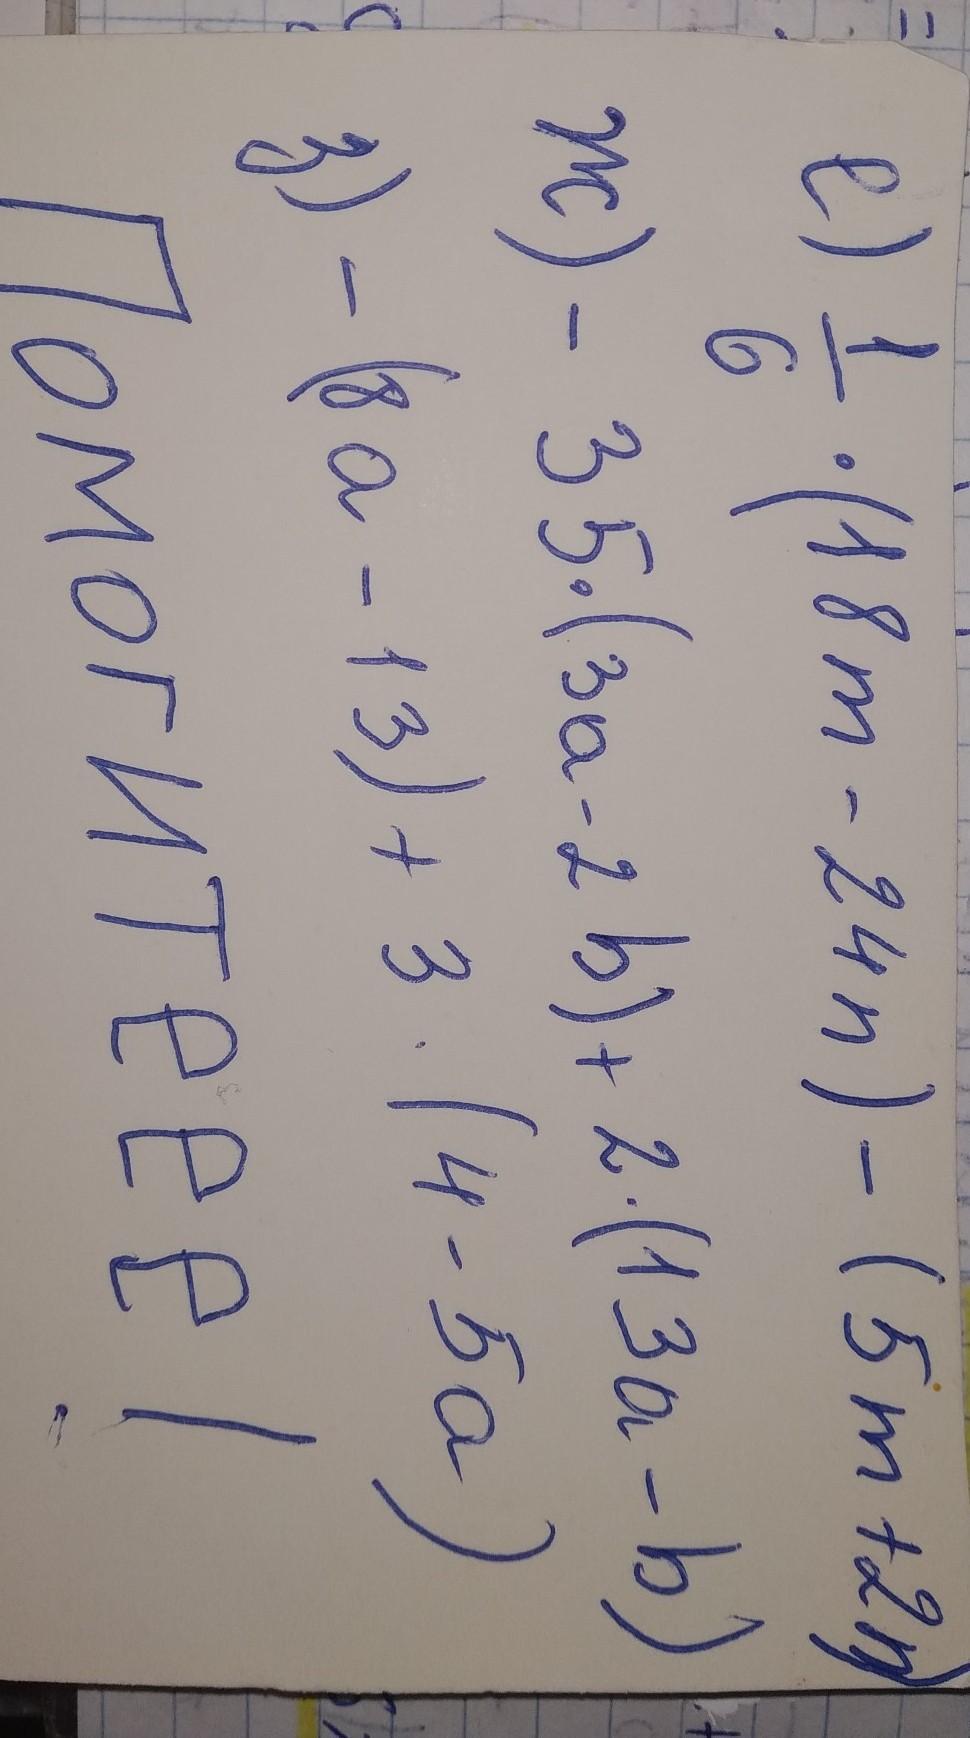 е) 1/6 · (18m - 24n) - (5m + 2n)
ж) - 35 · (3a - 2b) + 2 · (13a - b)
з) - (8a - 13) + 3 · (4 - 5a)
ПомогИТеее!